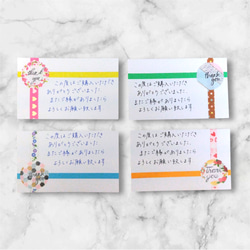 thank you
この度はご購入いただき
ありがとうございました
またご縁がありましたら
よろしくお願い致します
この度はご購入いただき
ありがとうございました
またご縁がありましたら
よろしくお願い致します
thank you
この度はご購入いただき
ありがとうございました
またご縁がありましたら
よろしくお願い致します
この度はご購入いただき
ありがとうございました
またご縁がありましたら
よろしくお願い致します
thank you